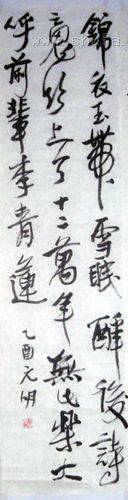 錦衣玉帶雪眠醉後詩
魂欲上天十二萬年無此樂大
呼前輩李青蓮
乙酉元明